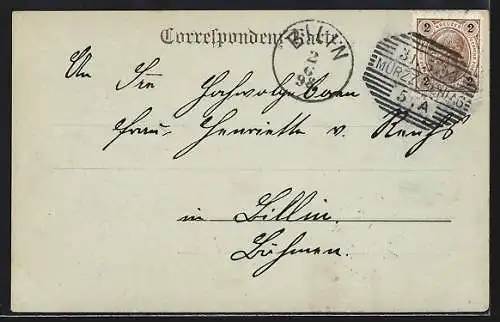 Correspondenz-Karte
BILIN
2
6
98
2 2
MÜRZZUSCHLAG
5.A
An Ihre Hochwolgeboren
Frau Henriette v. Reuß
in Billin.
Böhmen.